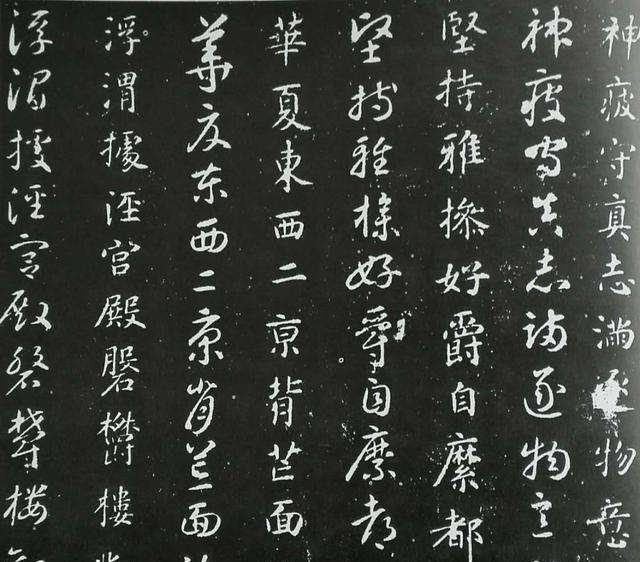 神疲守真志滿逐物意
神疲守真志滿逐物意
堅持雅操好爵自縻都
堅持雅操好爵自縻都
華夏東西二京背芒面
華夏東西二京背芒面
浮渭據涇宮殿磐欝樓
浮渭據涇宮殿磐欝樓